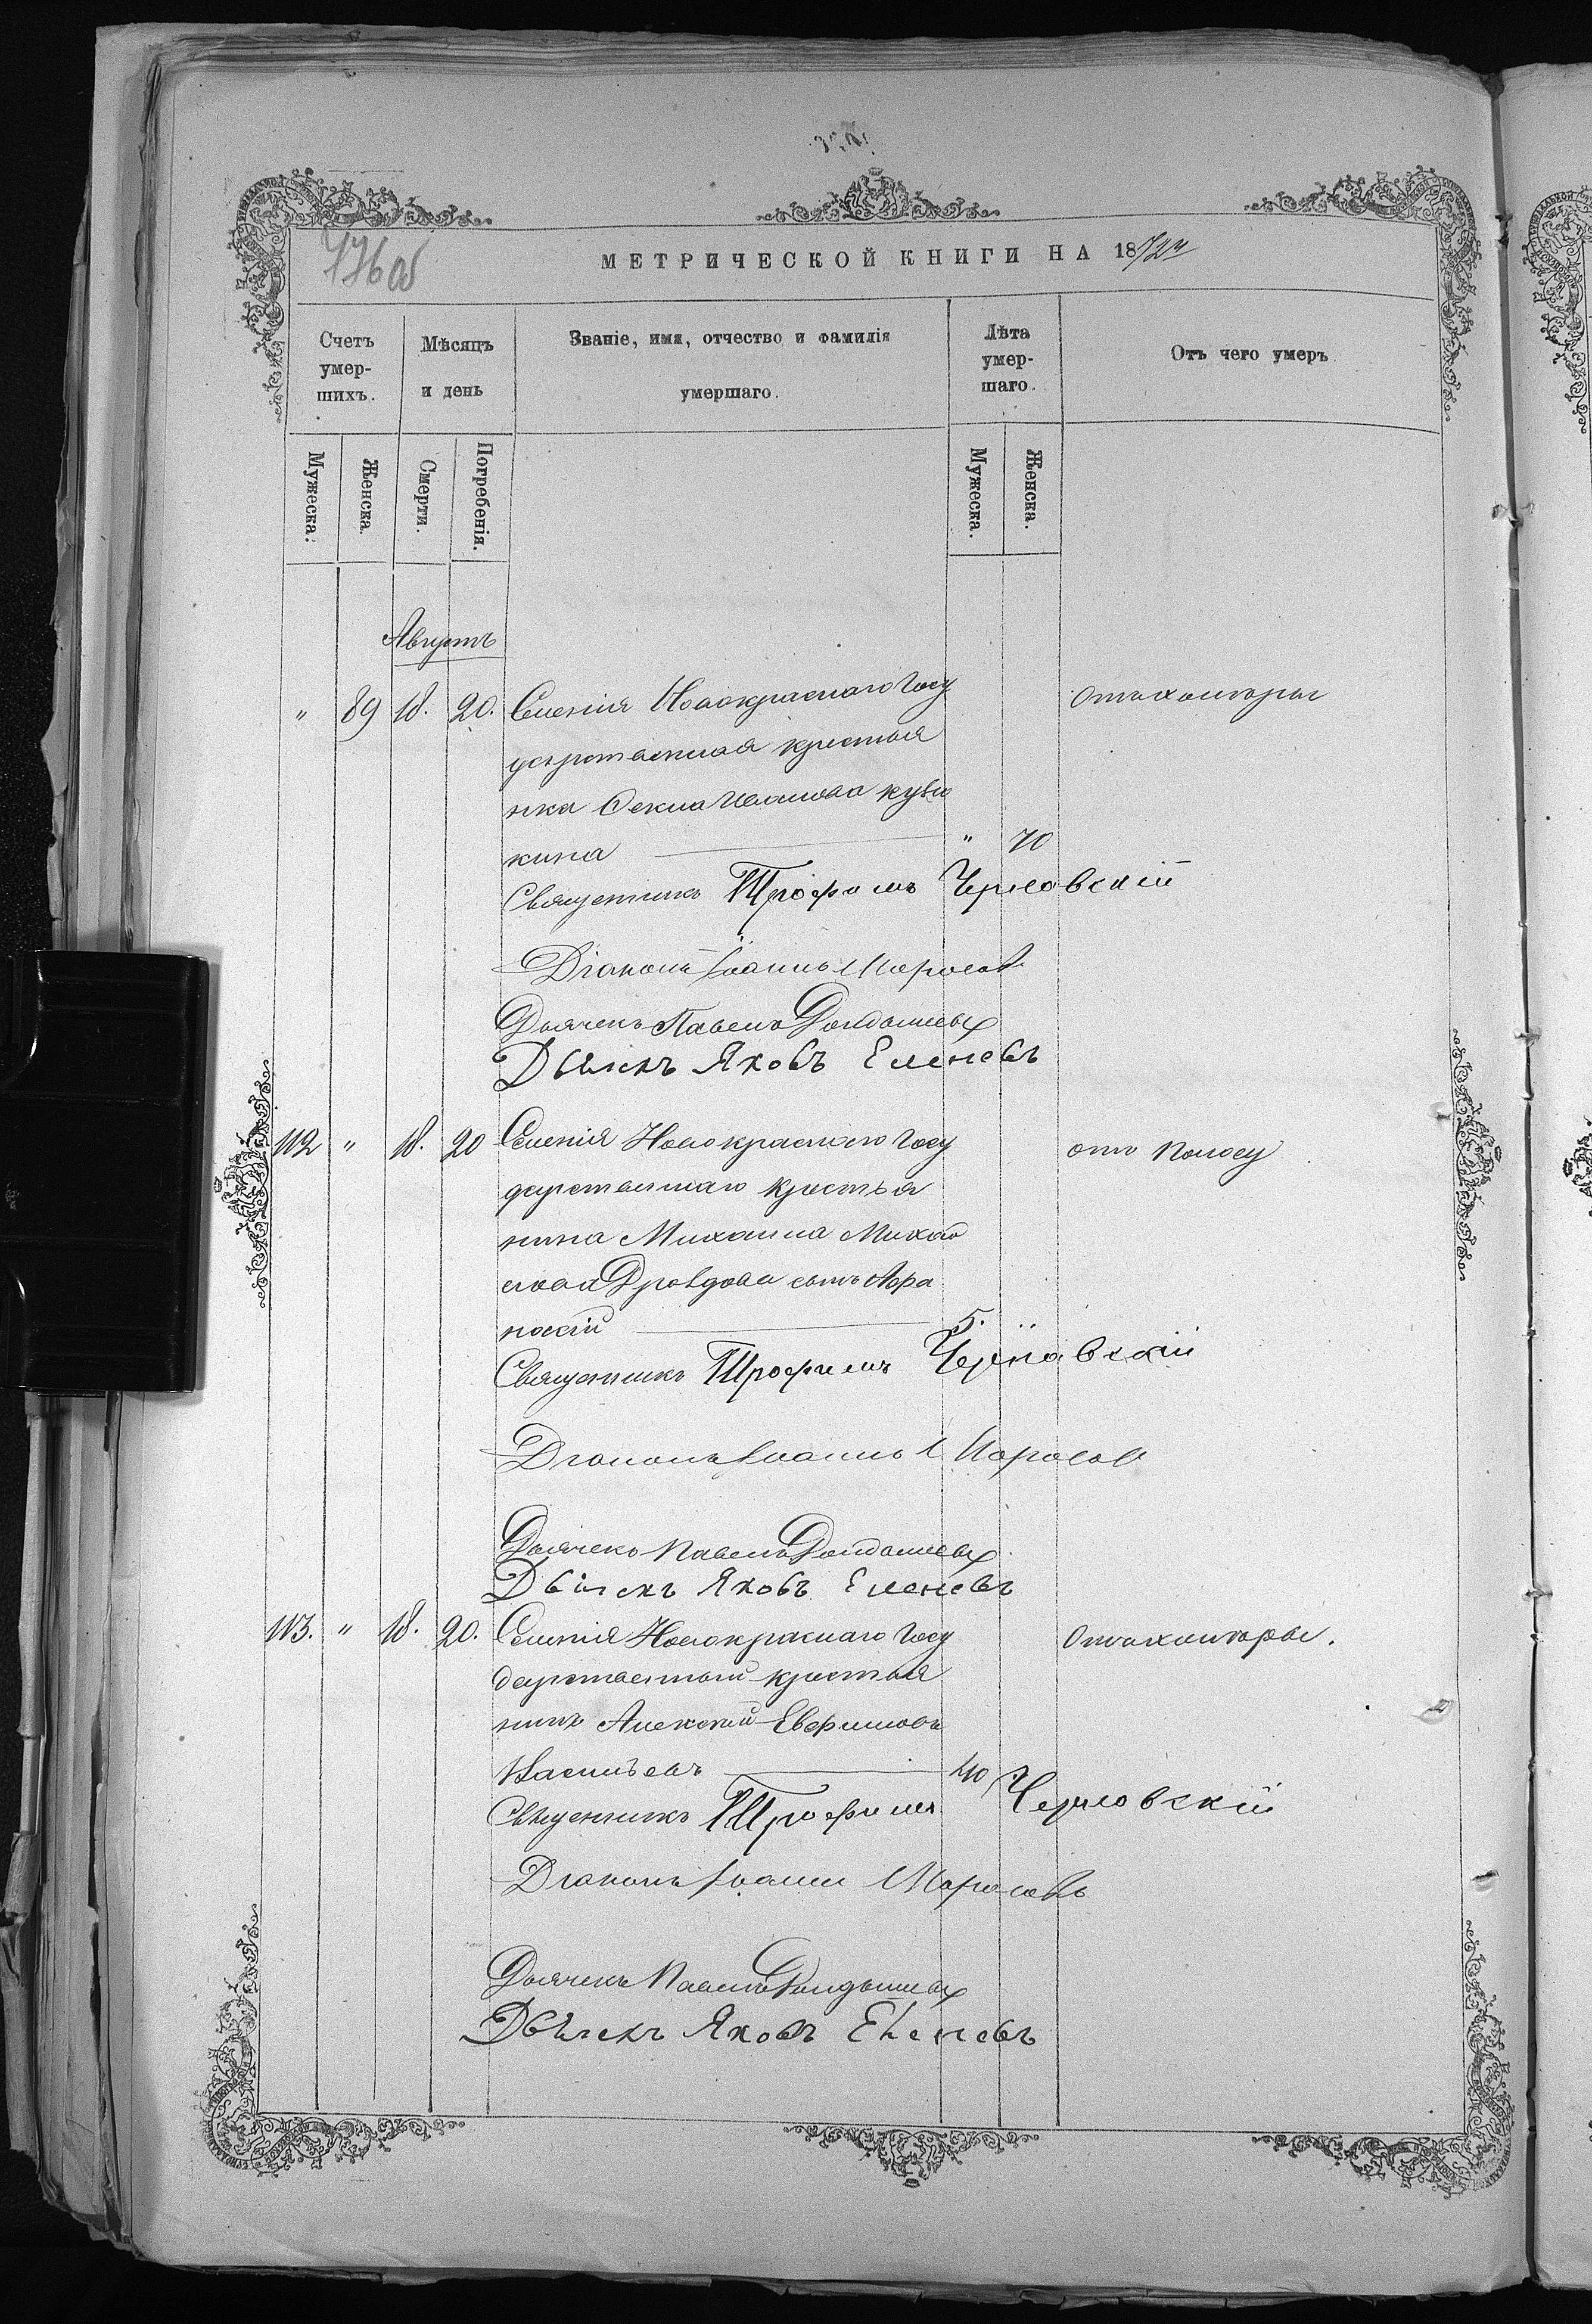 776об
МЕТРИЧЕСКОЙ КНИГИ НА 1872й
Счетъ умер-шихъ.
Мѣсяцъ и день
Званіе, имя, отчество и фамилія умершаго.
Лѣта умер-шаго.
Отъ чего умеръ
Мужеска.
Женска.
Смерти.
Погребенія.
Мужеска.
Женска.
Августъ
" 89 18. 20. Селенія Новокраснаго Госу отъ холеры
дарственная крестья
нка Фекла Иванова
кина " 70
Священникъ Трофимъ Черновскій
Діаконъ Іоаннъ Морозов
Дьячекъ Павелъ
Дьячекъ Яковъ Еленевъ
112 " 18. 20 Селенія Новокраснаго Госу отъ поносу
дарственнаго крестья
нина Михаила Михай
лова Дроздова сынъ Афа
насій 5. "
Священникъ Трофимъ Черновскій
Діаконъ Іоаннъ Морозов
Дьячекъ Павелъ
Дьячекъ Яковъ Еленевъ
113. " 18. 20. Селенія Новокраснаго Госу отъ холеры.
дарственный крестья
нинъ Алексѣй Евфимовъ
Васильевъ 40
Священникъ Трофимъ Черновскій
Діаконъ Іоанн Морозовъ
Дьячекъ Павелъ
Дьячекъ Яковъ Еленевъ